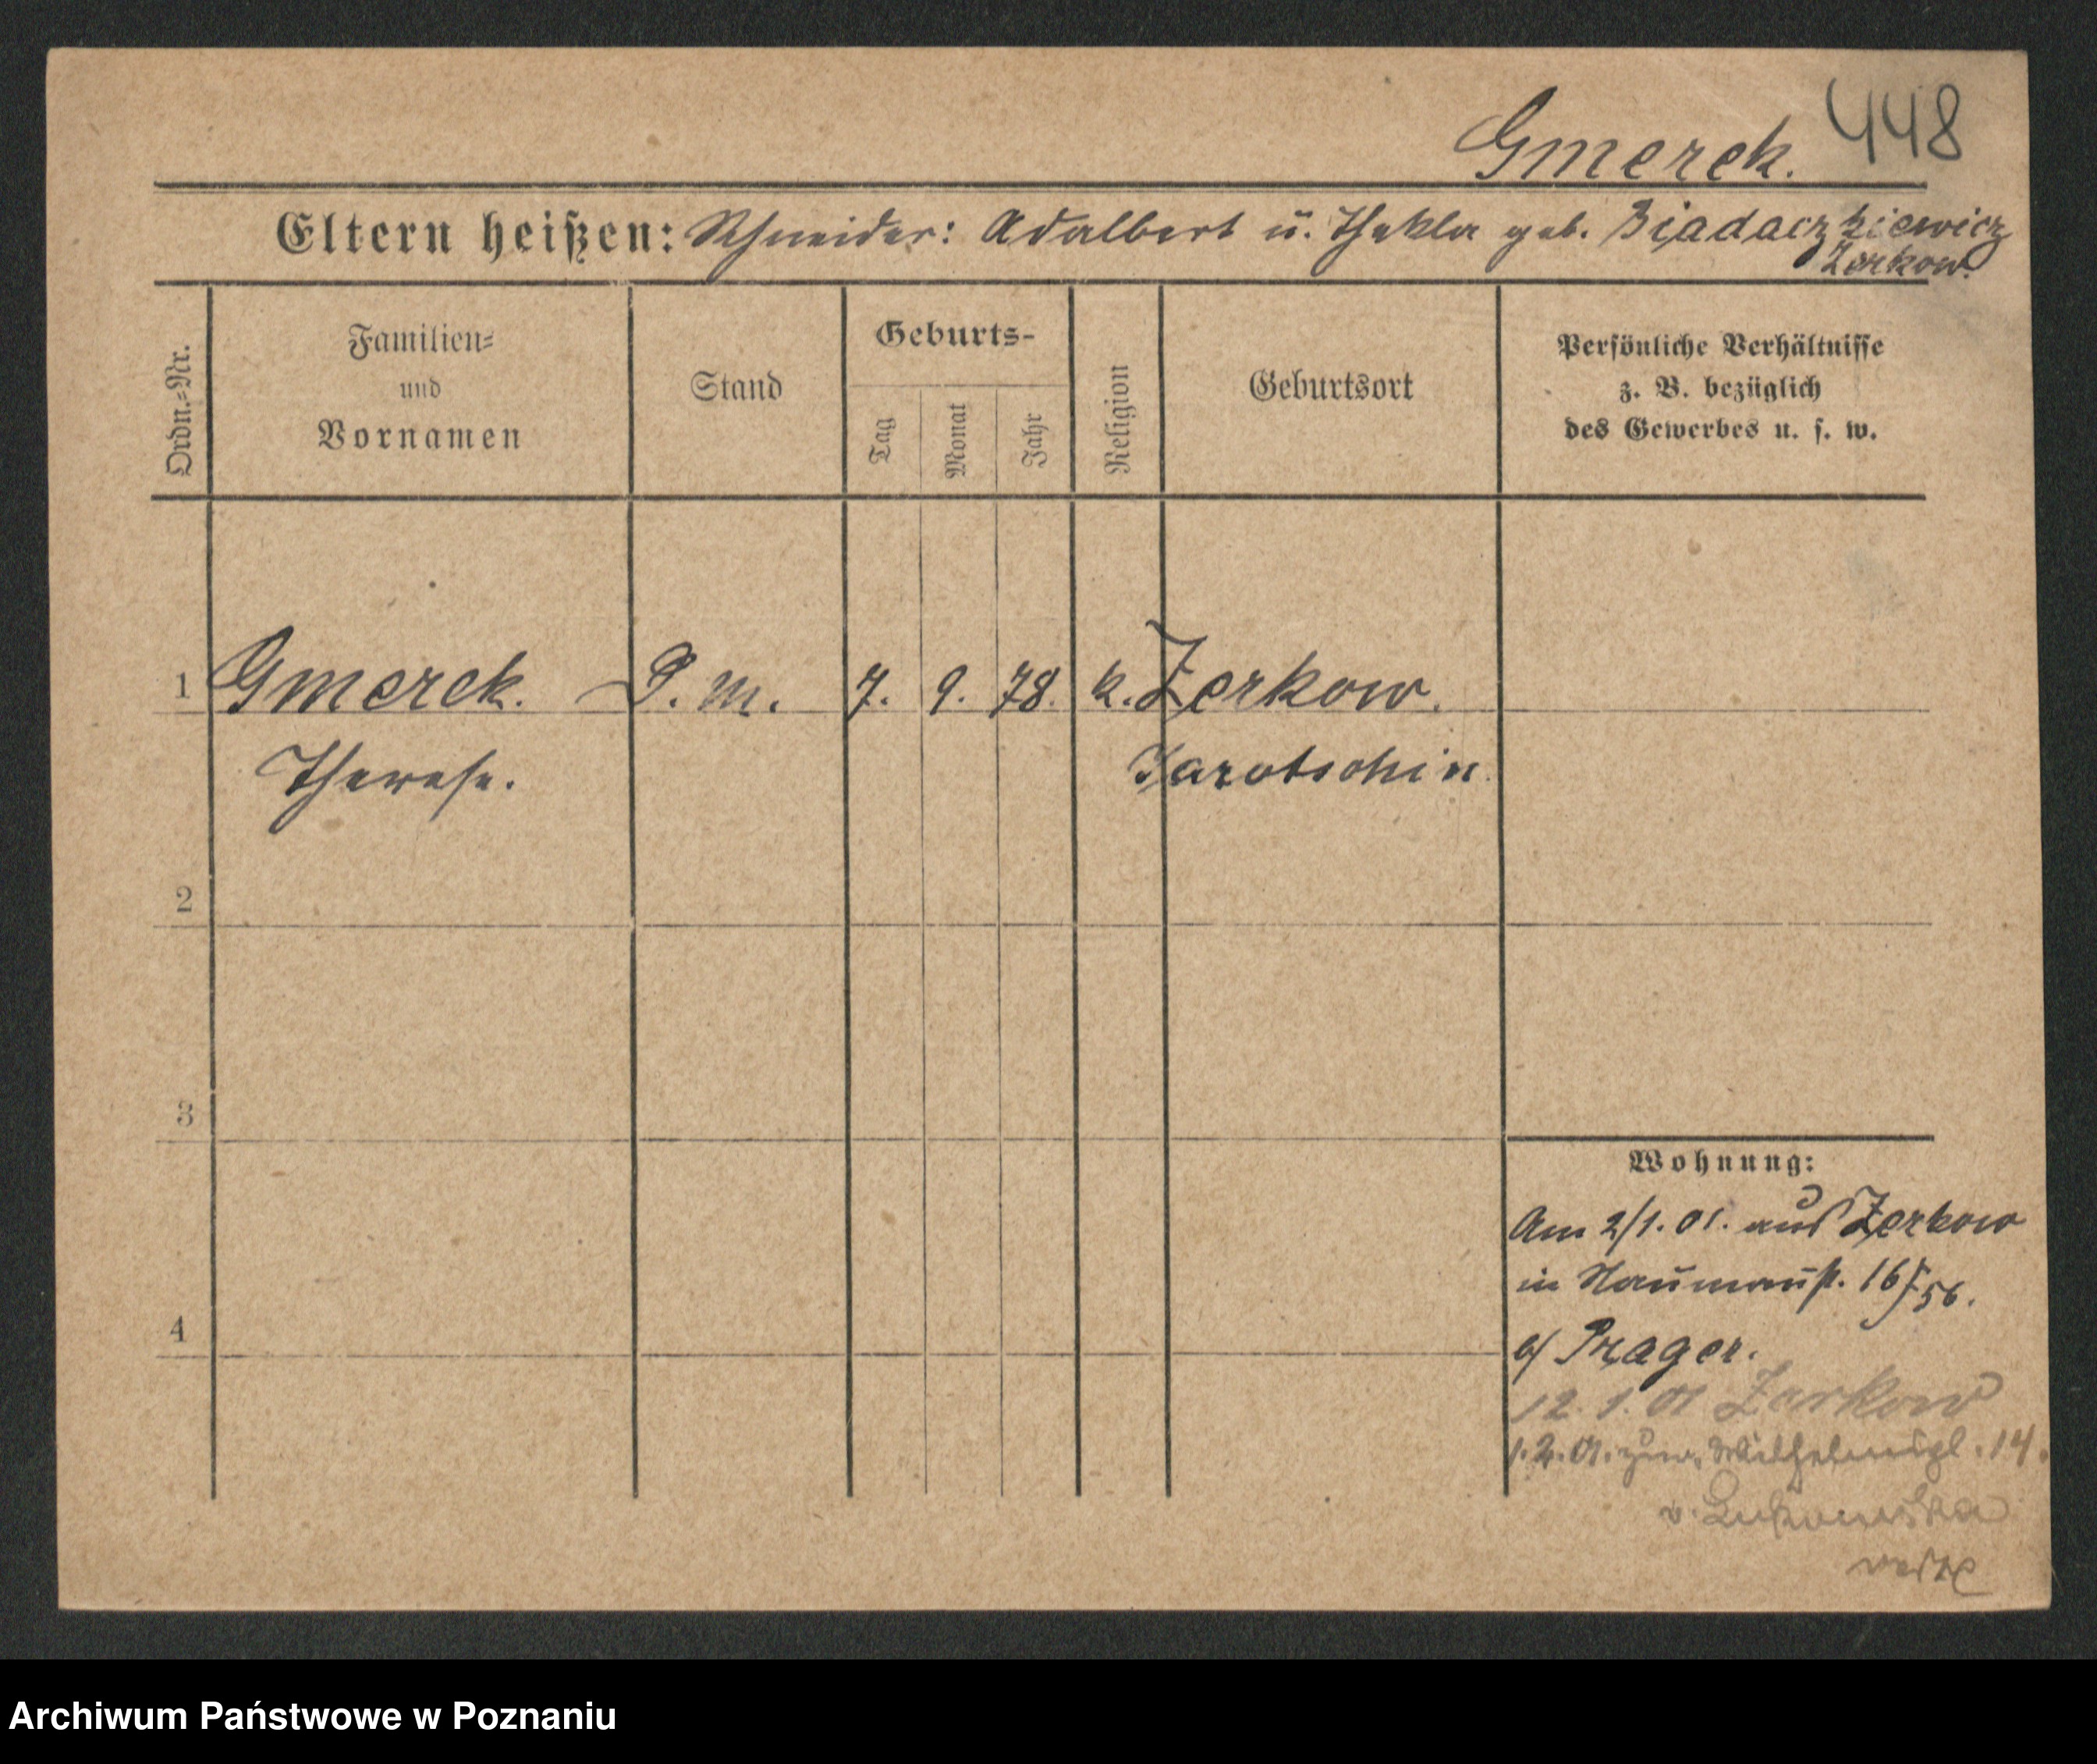 Gmerek. 448
Eltern heißen: Schneider: Adalbert u. Thekla geb. Biadaczkiewicz
Zerkow.
Ordn.=Nr.
Familien=
und
Vornamen
Stand
Geburts-
Tag
Monat
Jahr
Religion
Geburtsort
Persönliche Verhältnisse
z. B. bezüglich
des Gewerbes u. s. w.
1 Gmerek. D. m. 7. 9. 78. k. Zerkow.
Therese. Jarotschin.
2
3
4
Wohnung:
Am 2/1. 01. aus Zerkow
in Naumannst. 16/ 56.
b/ Prager.
12. 1. 01 Zerkow
1. 2. 01. Wilhelmspl. 14.
v.